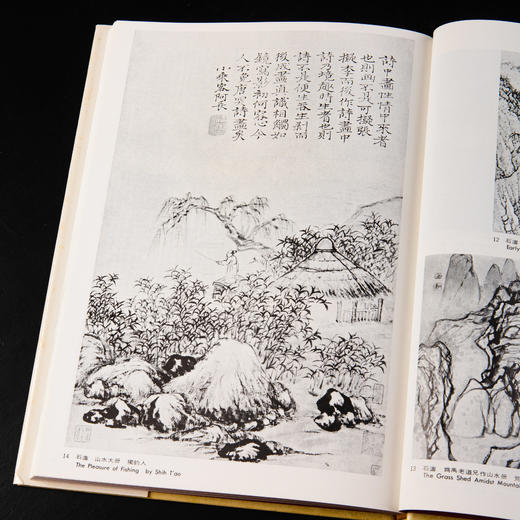 詩中畫性情中來者
也則画不是可擬張
擬李而後作詩畫中
詩乃境趣時生者也則
詩不是便生吞生剥而
後成畫真識相觸如
鏡寫影初何容心今
人不免唐突詩畫矣
小乘客阿長
14 石濤 山水大冊 獨釣人
The Pleasure of Fishing by Shih T'ao
12 石濤
Early
13 石濤 為禹老道兄作山水冊
The Grass Shed Amidst Mount